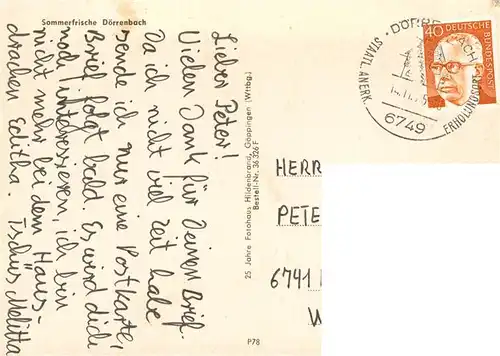 Sommerfrische Dörrenbach
Lieber Peter!
Vielen Dank für Deinen Brief.
Da ich nicht viel Zeit habe
sende ich nur eine Postkarte,
Brief folgt bald. Es wird dich
noch interessieren, ich bin
nicht mehr bei dem Haus-
drachen Editha. Tschüs Melitta
25 Jahre Fotohaus Hildenbrand, Göppingen (Wttbg.)
Bestell-Nr. 36 326 F
P78
STAATL. ANERK.
ERHOLUNGSORT
6749
40 DEUTSCHE BUNDESPOST
HERR
PETE
6741
W